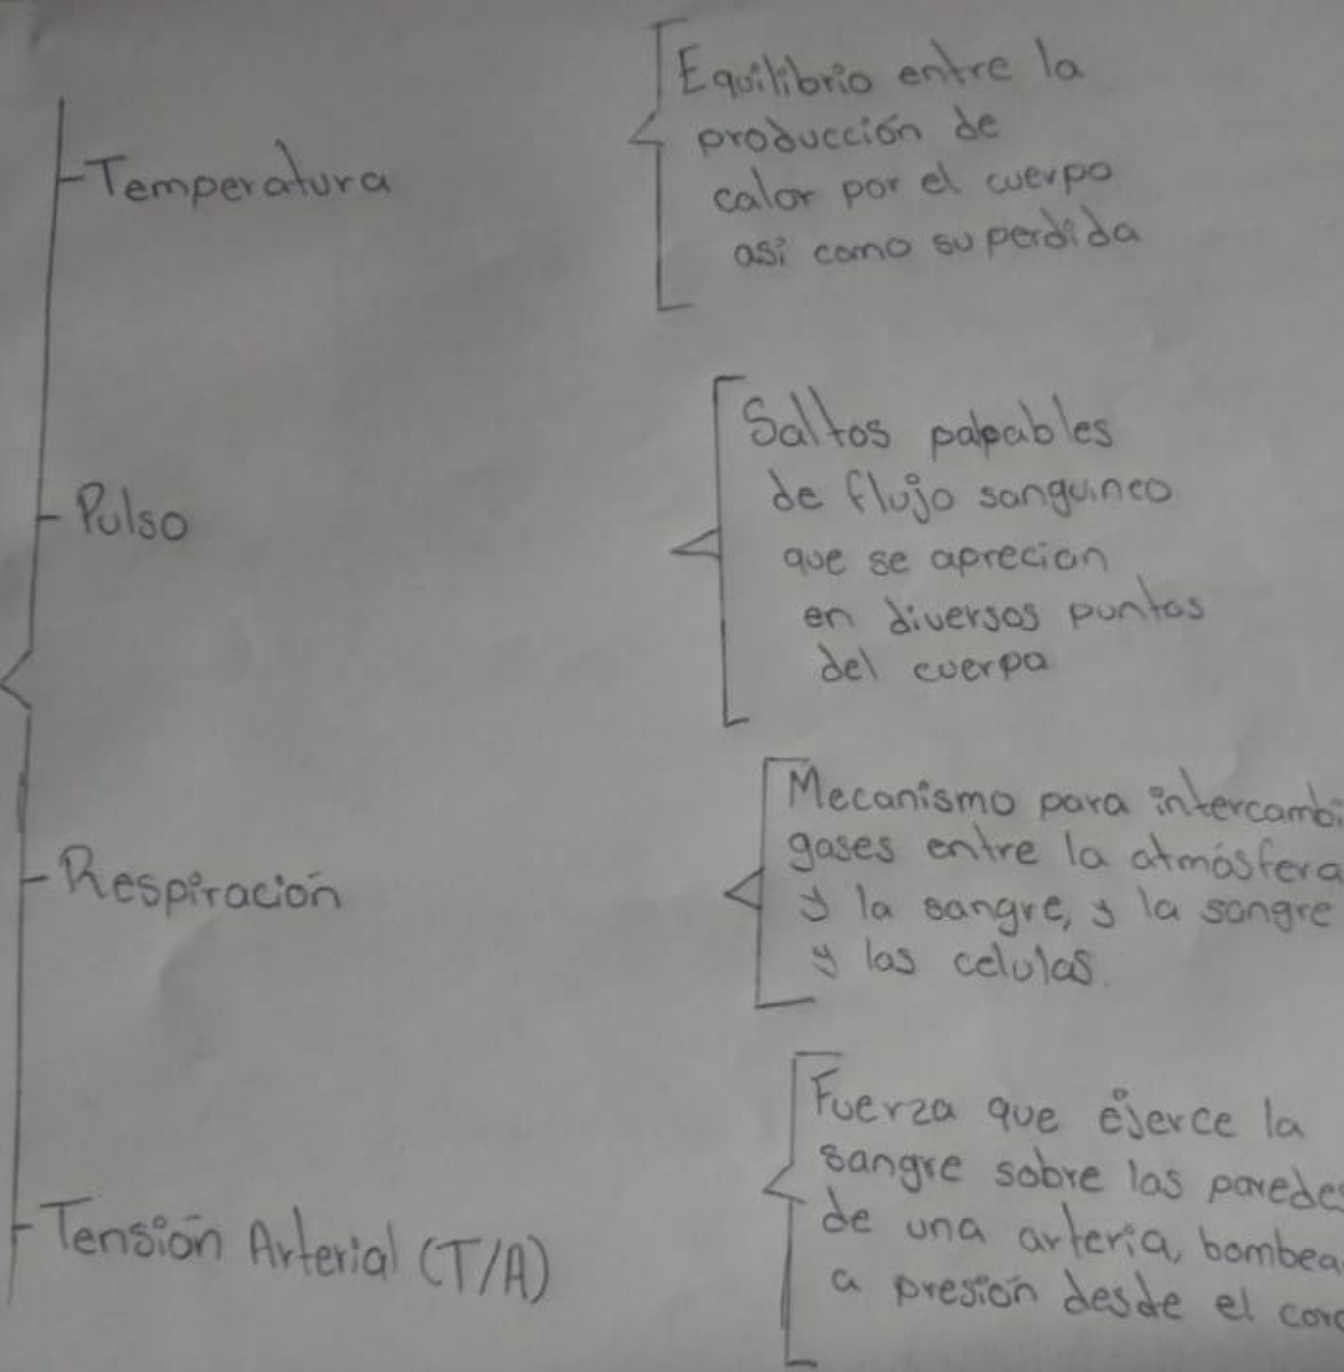 Temperatura
Equilibrio entre la
producción de
calor por el cuerpo
asi como su perdida
Pulso
Saltos palpables
de flujo sanguineo
que se aprecian
en diversos puntos
del cuerpo
Respiración
Mecanismo para intercambi
gases entre la atmósfera
y la sangre, y la sangre
y las celulas.
Tensión Arterial (T/A)
Fuerza que ejerce la
sangre sobre las parede
de una arteria, bombea
a presión desde el cor